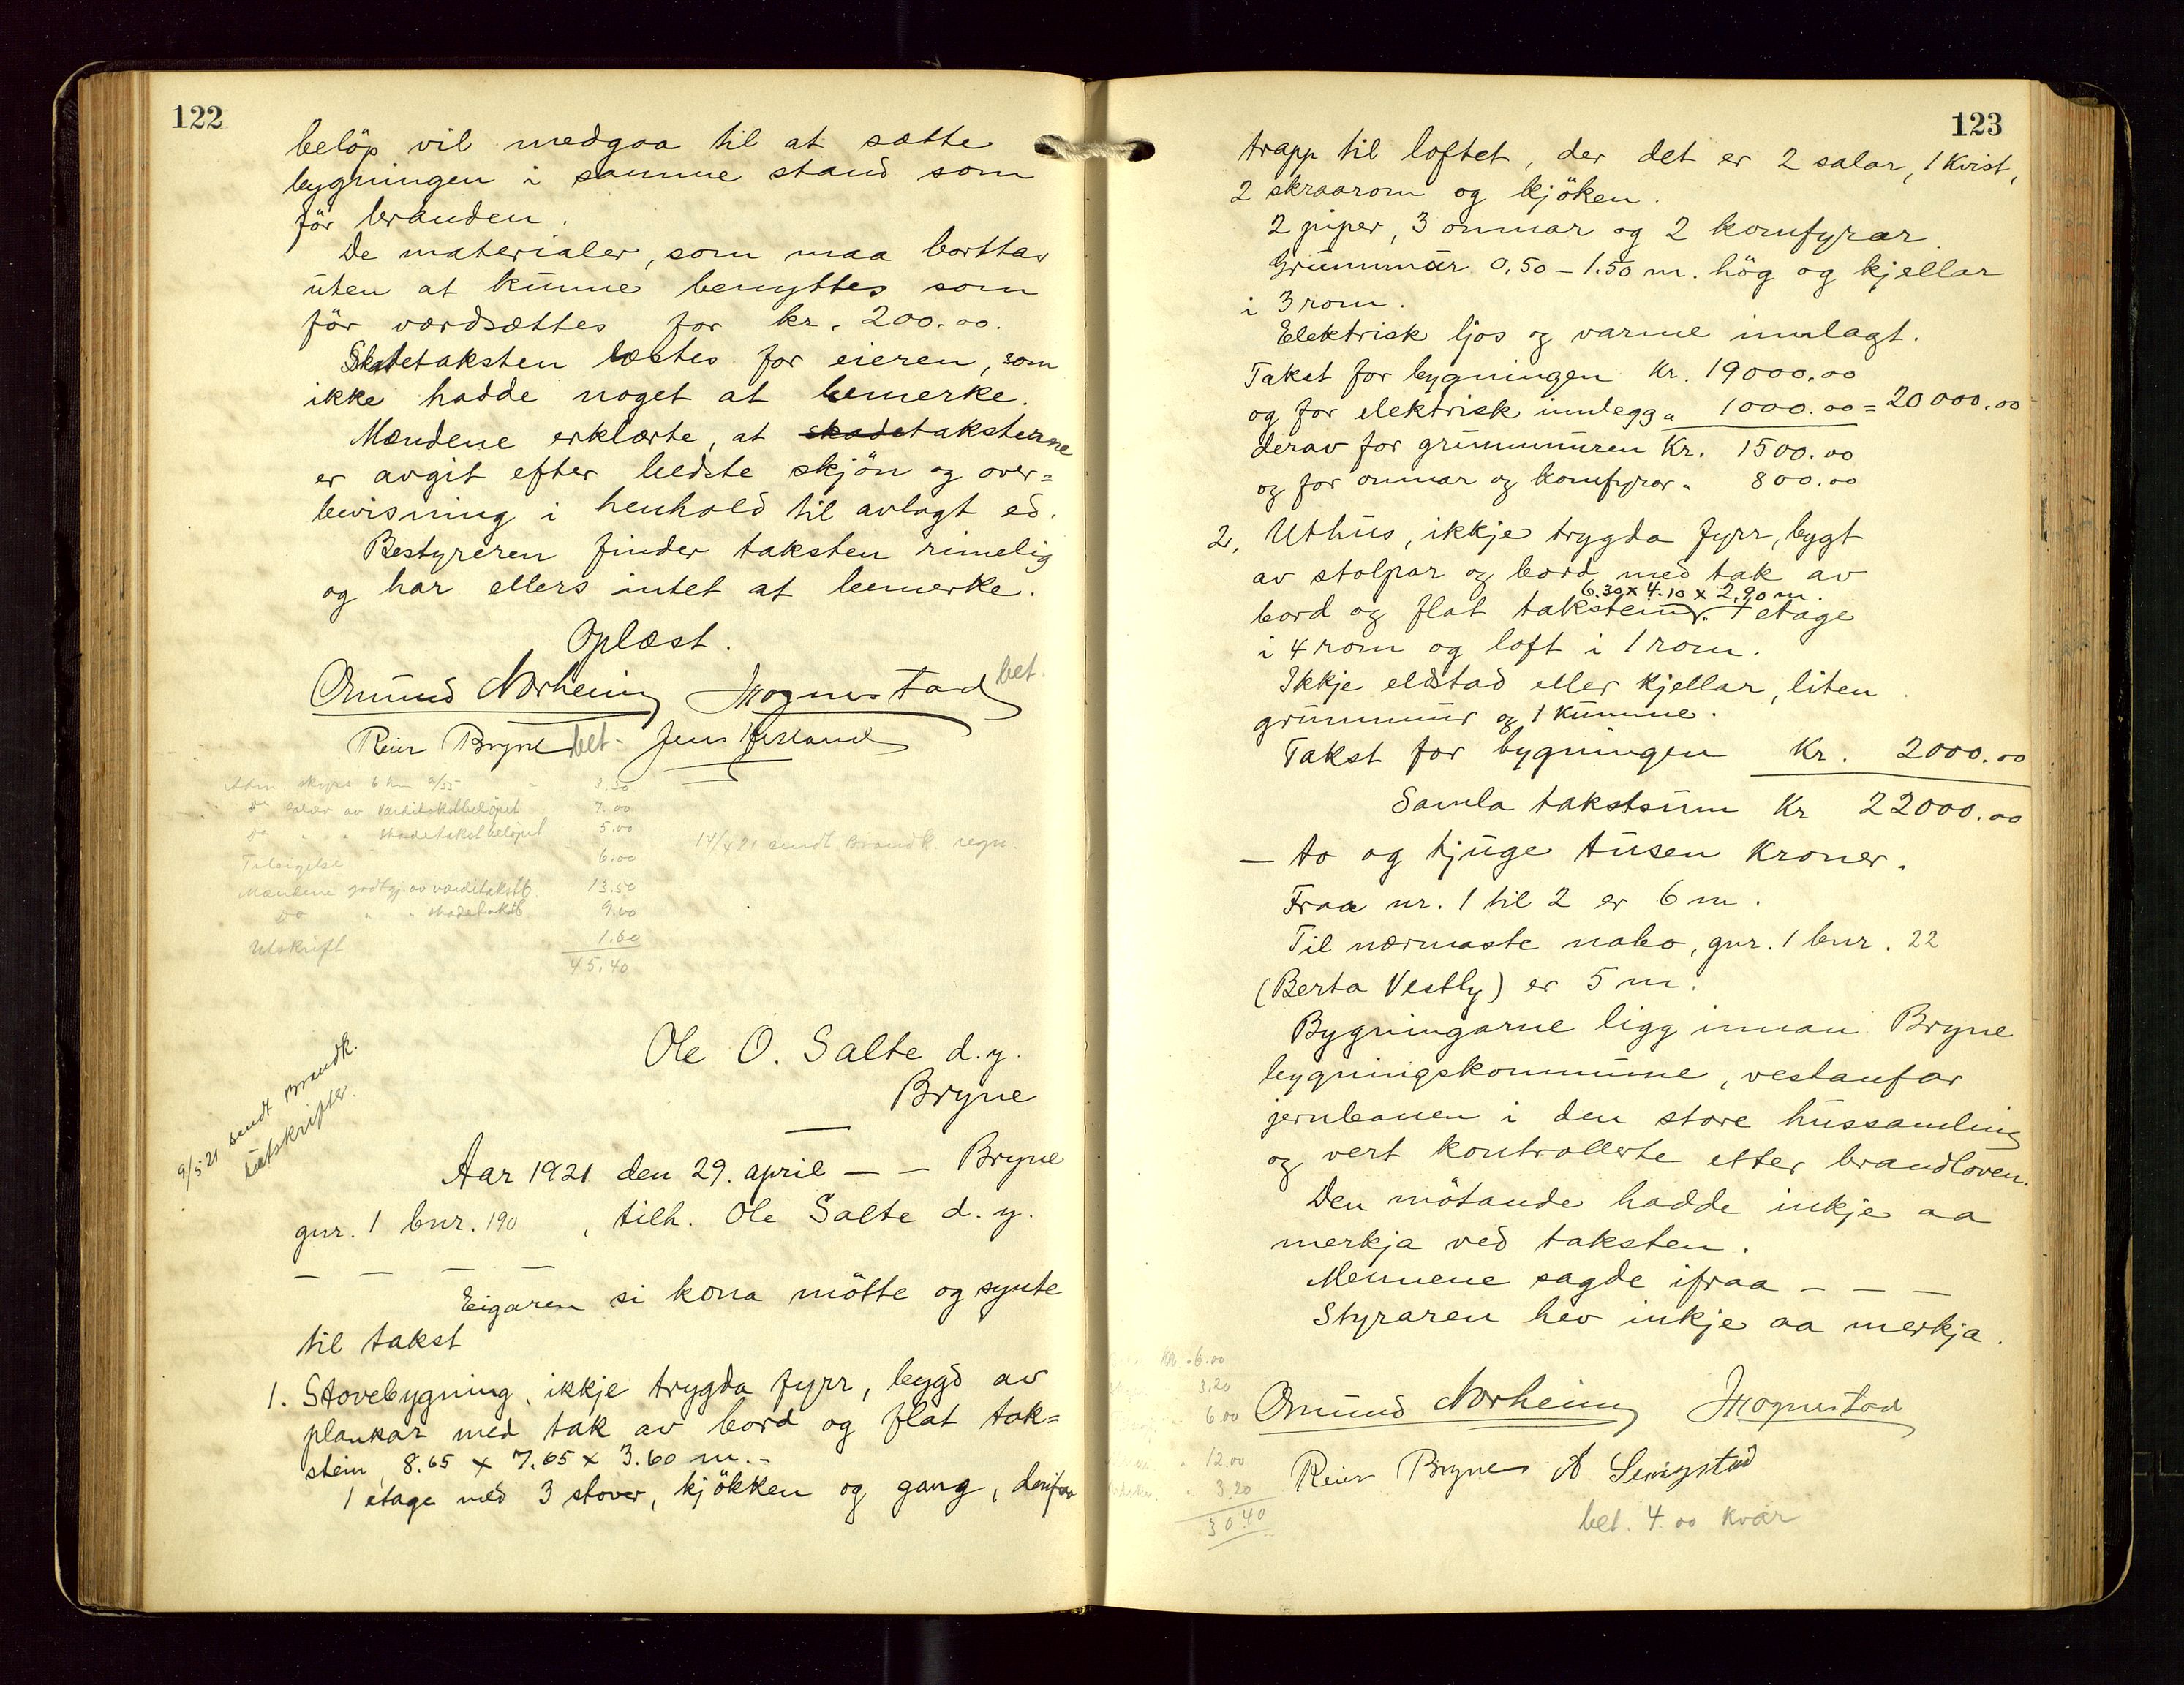 122
belöp vil medgaa til at sætte
bygningen i samme stand som
för branden.
De materialer, som maa borttas
uten at kunne benyttes som
för værdsættes for kr. 200.00.
Skadetaksten læstes for eieren, som
ikke hadde noget at bemerke.
Mændene erklærte, at skadetaksterne
er avgit efter bedste skjön og over=
bevisning i henhold til avlagt ed.
Bestyreren finder taksten rimelig
og har ellers intet at bemerke.
Oplæst.
Omund Norheim Hognestad bet.
Reier Bryne bet- Jens
skyss 6 km 3.30
Do salær av værditakstbelöpet 7.00
Do " " skadetakstbelöpet 5.00
Tilsigelse 6.00
Mændene godtgj. av værditakstb. 13.50
Do " " skadetakstb 9.00
Utskrift 1.60
45.40
14/4 21 sendt Brandk. regn.
9/5 21 sendt Brandk.
utskrifter.
Ole O. Salte d.y.
Bryne
Aar 1921 den 29. april — — Bryne
gnr. 1 bnr. 190 , tilh. Ole Salte d.y.
— — — — Eigaren si kona mötte og synte
til takst
1. Stovebygning, ikkje trygda fyrr, bygd av
plankar med tak av bord og flat tak=
stein, 8.65 x 7.65 x 3.60 m.-
1 etage med 3 stover, kjökken og gang, derifra
123
trapp til loftet, der det er 2 salar, 1 kvist,
2 skraarom og kjöken.
2 piper, 3 omnar og 2 komfyrar.
Grunnmur 0.50 - 1.50 m. hög og kjellar
i 3 rom.
Elektrisk ljos og varme innlagt.
Takst for bygningen Kr. 19000.00
og for elektrisk innlegg " 1000.00 = 20000.00
derav for grunnmuren Kr. 1500.00
og for omnar og komfyrar " 800.00
2. Uthus, ikkje trygda fyrr, bygt
av stolpar og bord med tak av
6.30 x 4.10 x 2.90 m.
bord og flat takstein. 1 etage
i 4 rom og loft i 1 rom.
Ikkje eldstad eller kjellar, liten
grunnmur og 1 kumme.
Takst for bygningen Kr. 2000.00
Samla takstsum Kr 22000.00
— to og tjuge tusen kroner.
Fraa nr. 1 til 2 er 6 m.
Til nærmaste nabo, gnr. 1 bnr. 22
(Berta Vestly) er 5 m.
Bygningarne ligg innan Bryne
bygningskommune, vestanfor
jernbanen i den store hussamling
og vert kontrollerte etter brandloven.
Den mötande hadde inkje aa
merkja ved taksten.
Mennene sagde ifraa — — —
Styraren hev inkje aa merkja.
Omund Norheim Hognestad
Reier Bryne
bet. 4.00 kvar
6.00
3.20
6.00
12.00
3.20
30.40